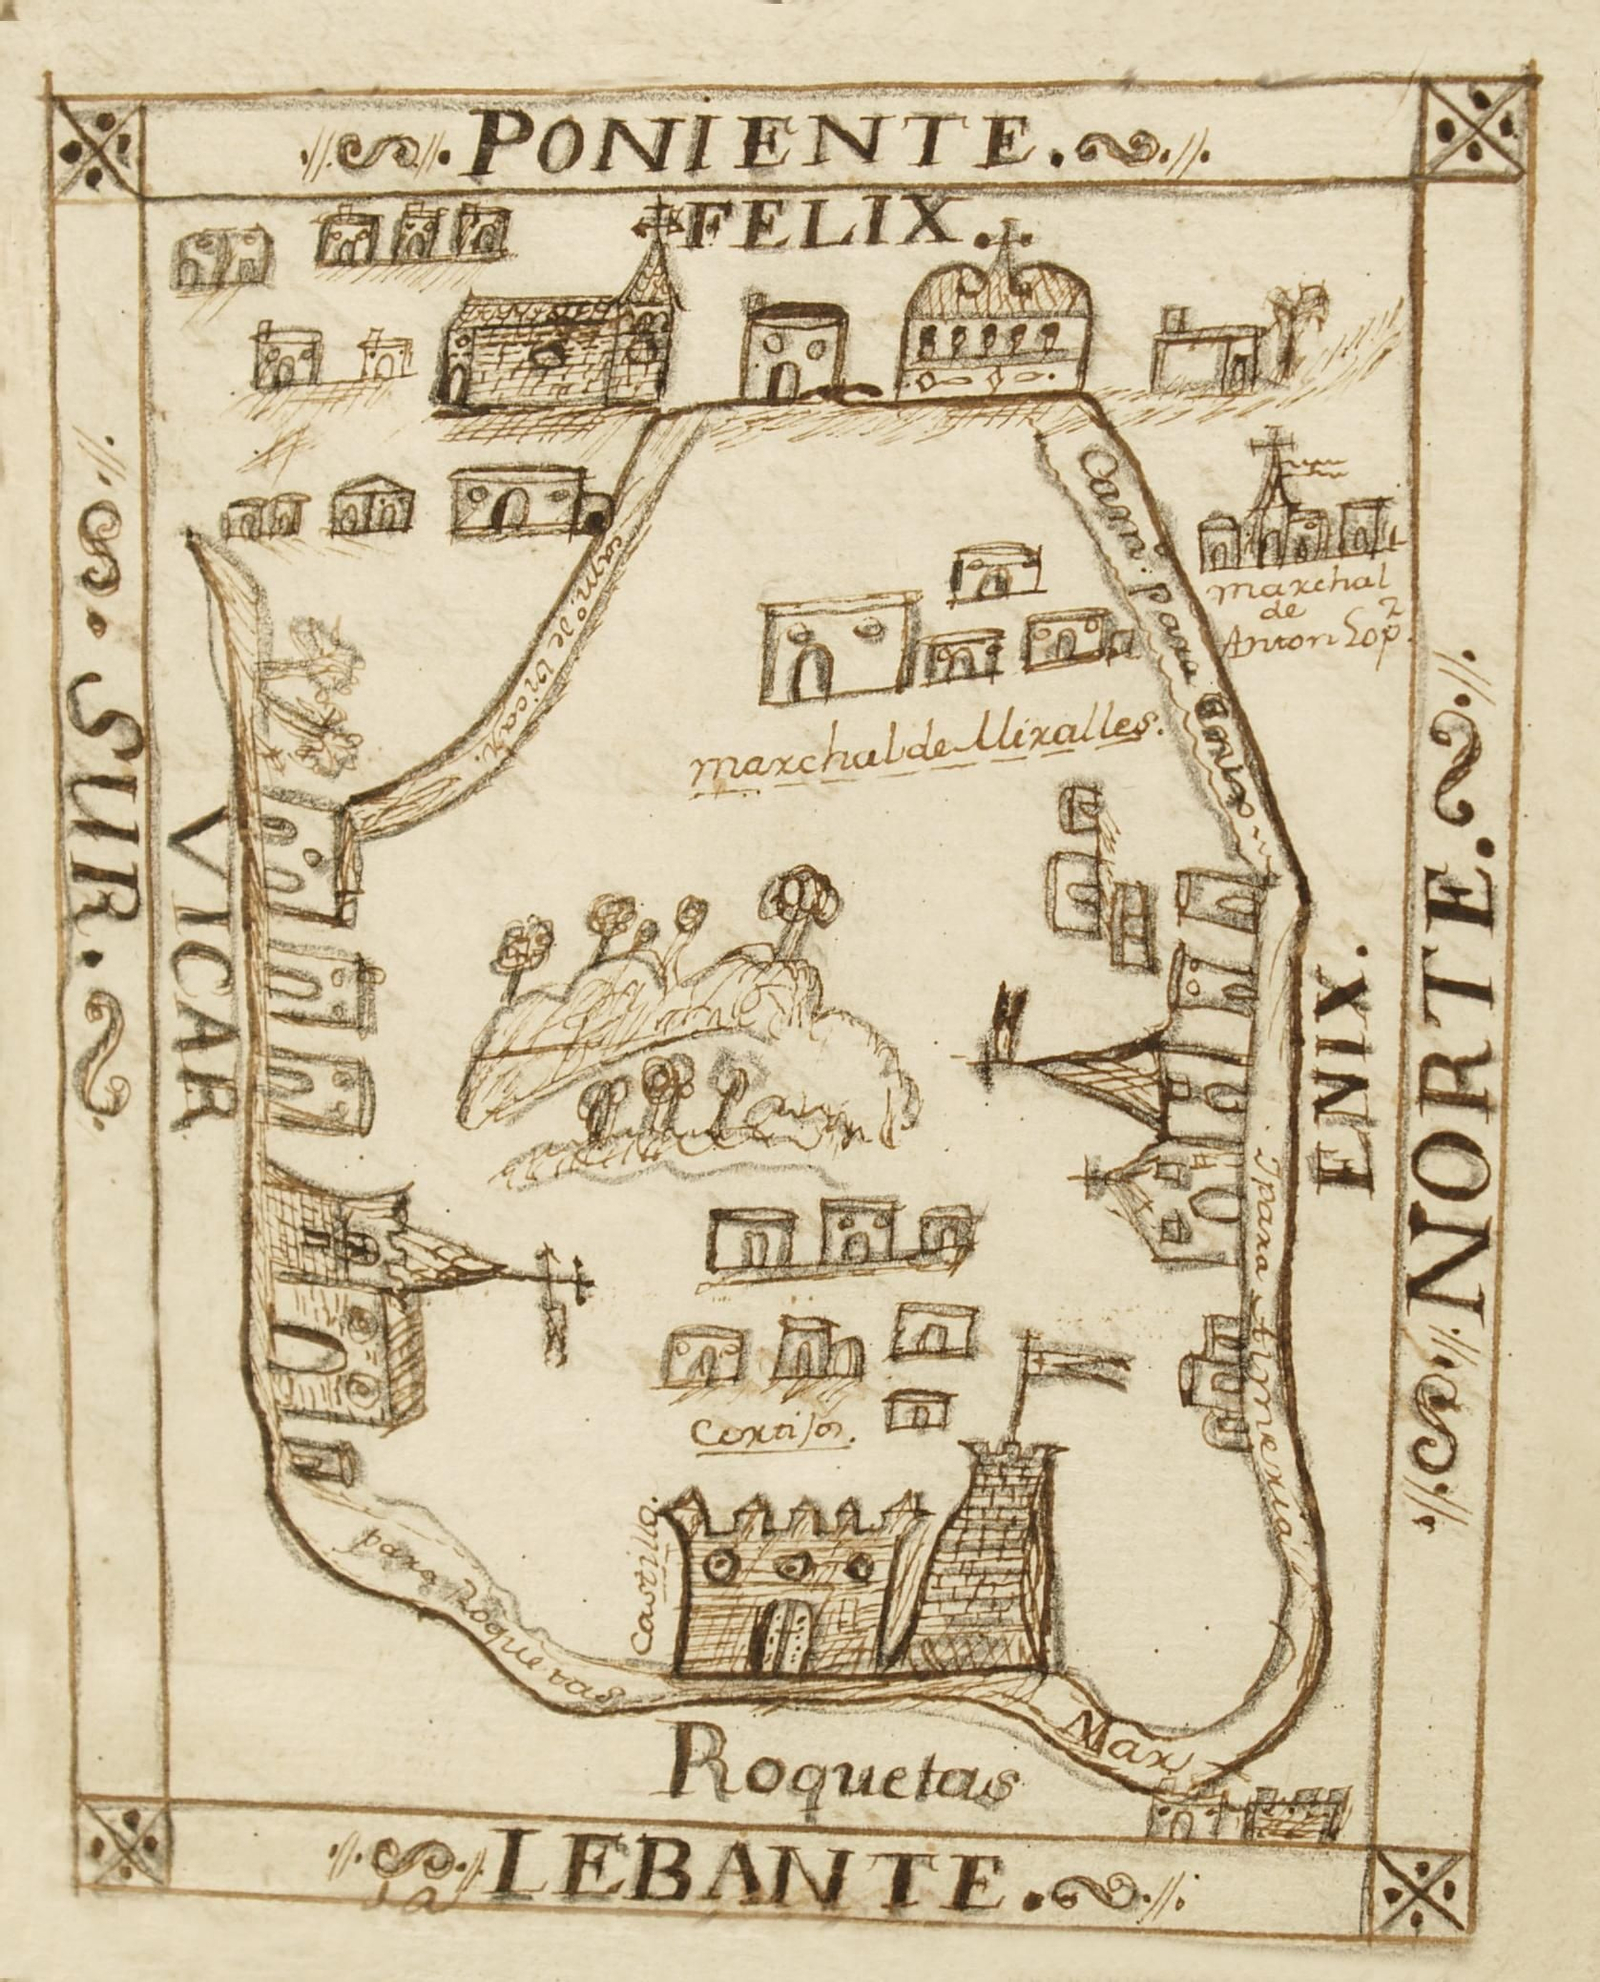 PONIENTE.
FELIX.
Cam.º de Vicar.
Cam.º para enix
marchal
de
Anton Lopz.
marchal de Mixalles.
SUR.
VICAR
ENIX.
NORTE.
Ypara Almeria
Cortijos.
Castillo.
para Roquetas
Mar
Roquetas
LEBANTE.